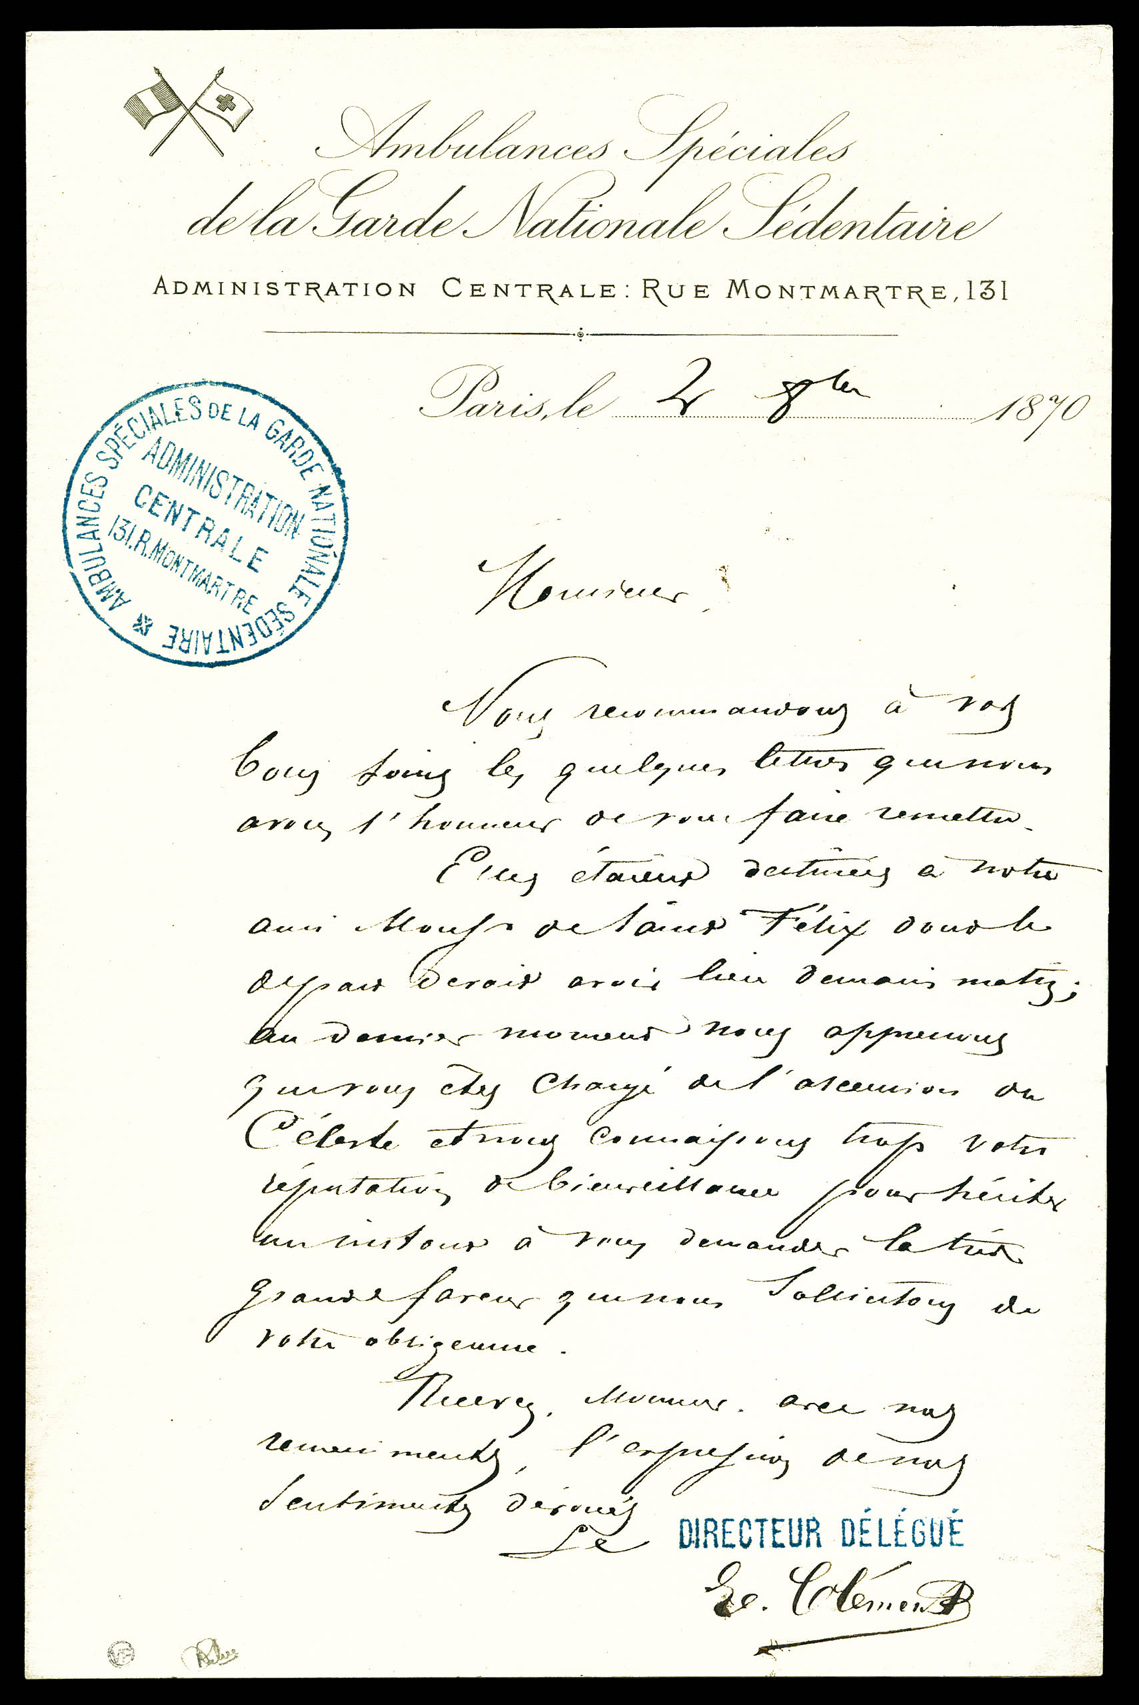 Ambulances Spéciales
de la Garde Nationale Sédentaire
ADMINISTRATION CENTRALE: RUE MONTMARTRE, 131
Paris, le 2 8bre 1870
AMBULANCES SPÉCIALES DE LA GARDE NATIONALE SÉDENTAIRE
ADMINISTRATION
CENTRALE
131. R. MONTMARTRE
Monsieur,
Nous recommandons à vos
bons soins les quelques lettres que nous
avons l'honneur de vous faire remettre.
Elles étaient destinées à notre
ami Monsr de Saint Félix dont le
départ devait avoir lieu demain matin;
au dernier moment nous apprenons
que vous êtes chargé de l'ascension du
Céleste et nous connaissons trop votre
réputation de bienveillance pour hésiter
un instant à vous demander la très
grande faveur que nous sollicitons de
votre obligeance.
Recevez, Monsieur, avec nos
remerciments, l'expression de nos
sentiments dévoués
Le DIRECTEUR DÉLÉGUÉ
Clément